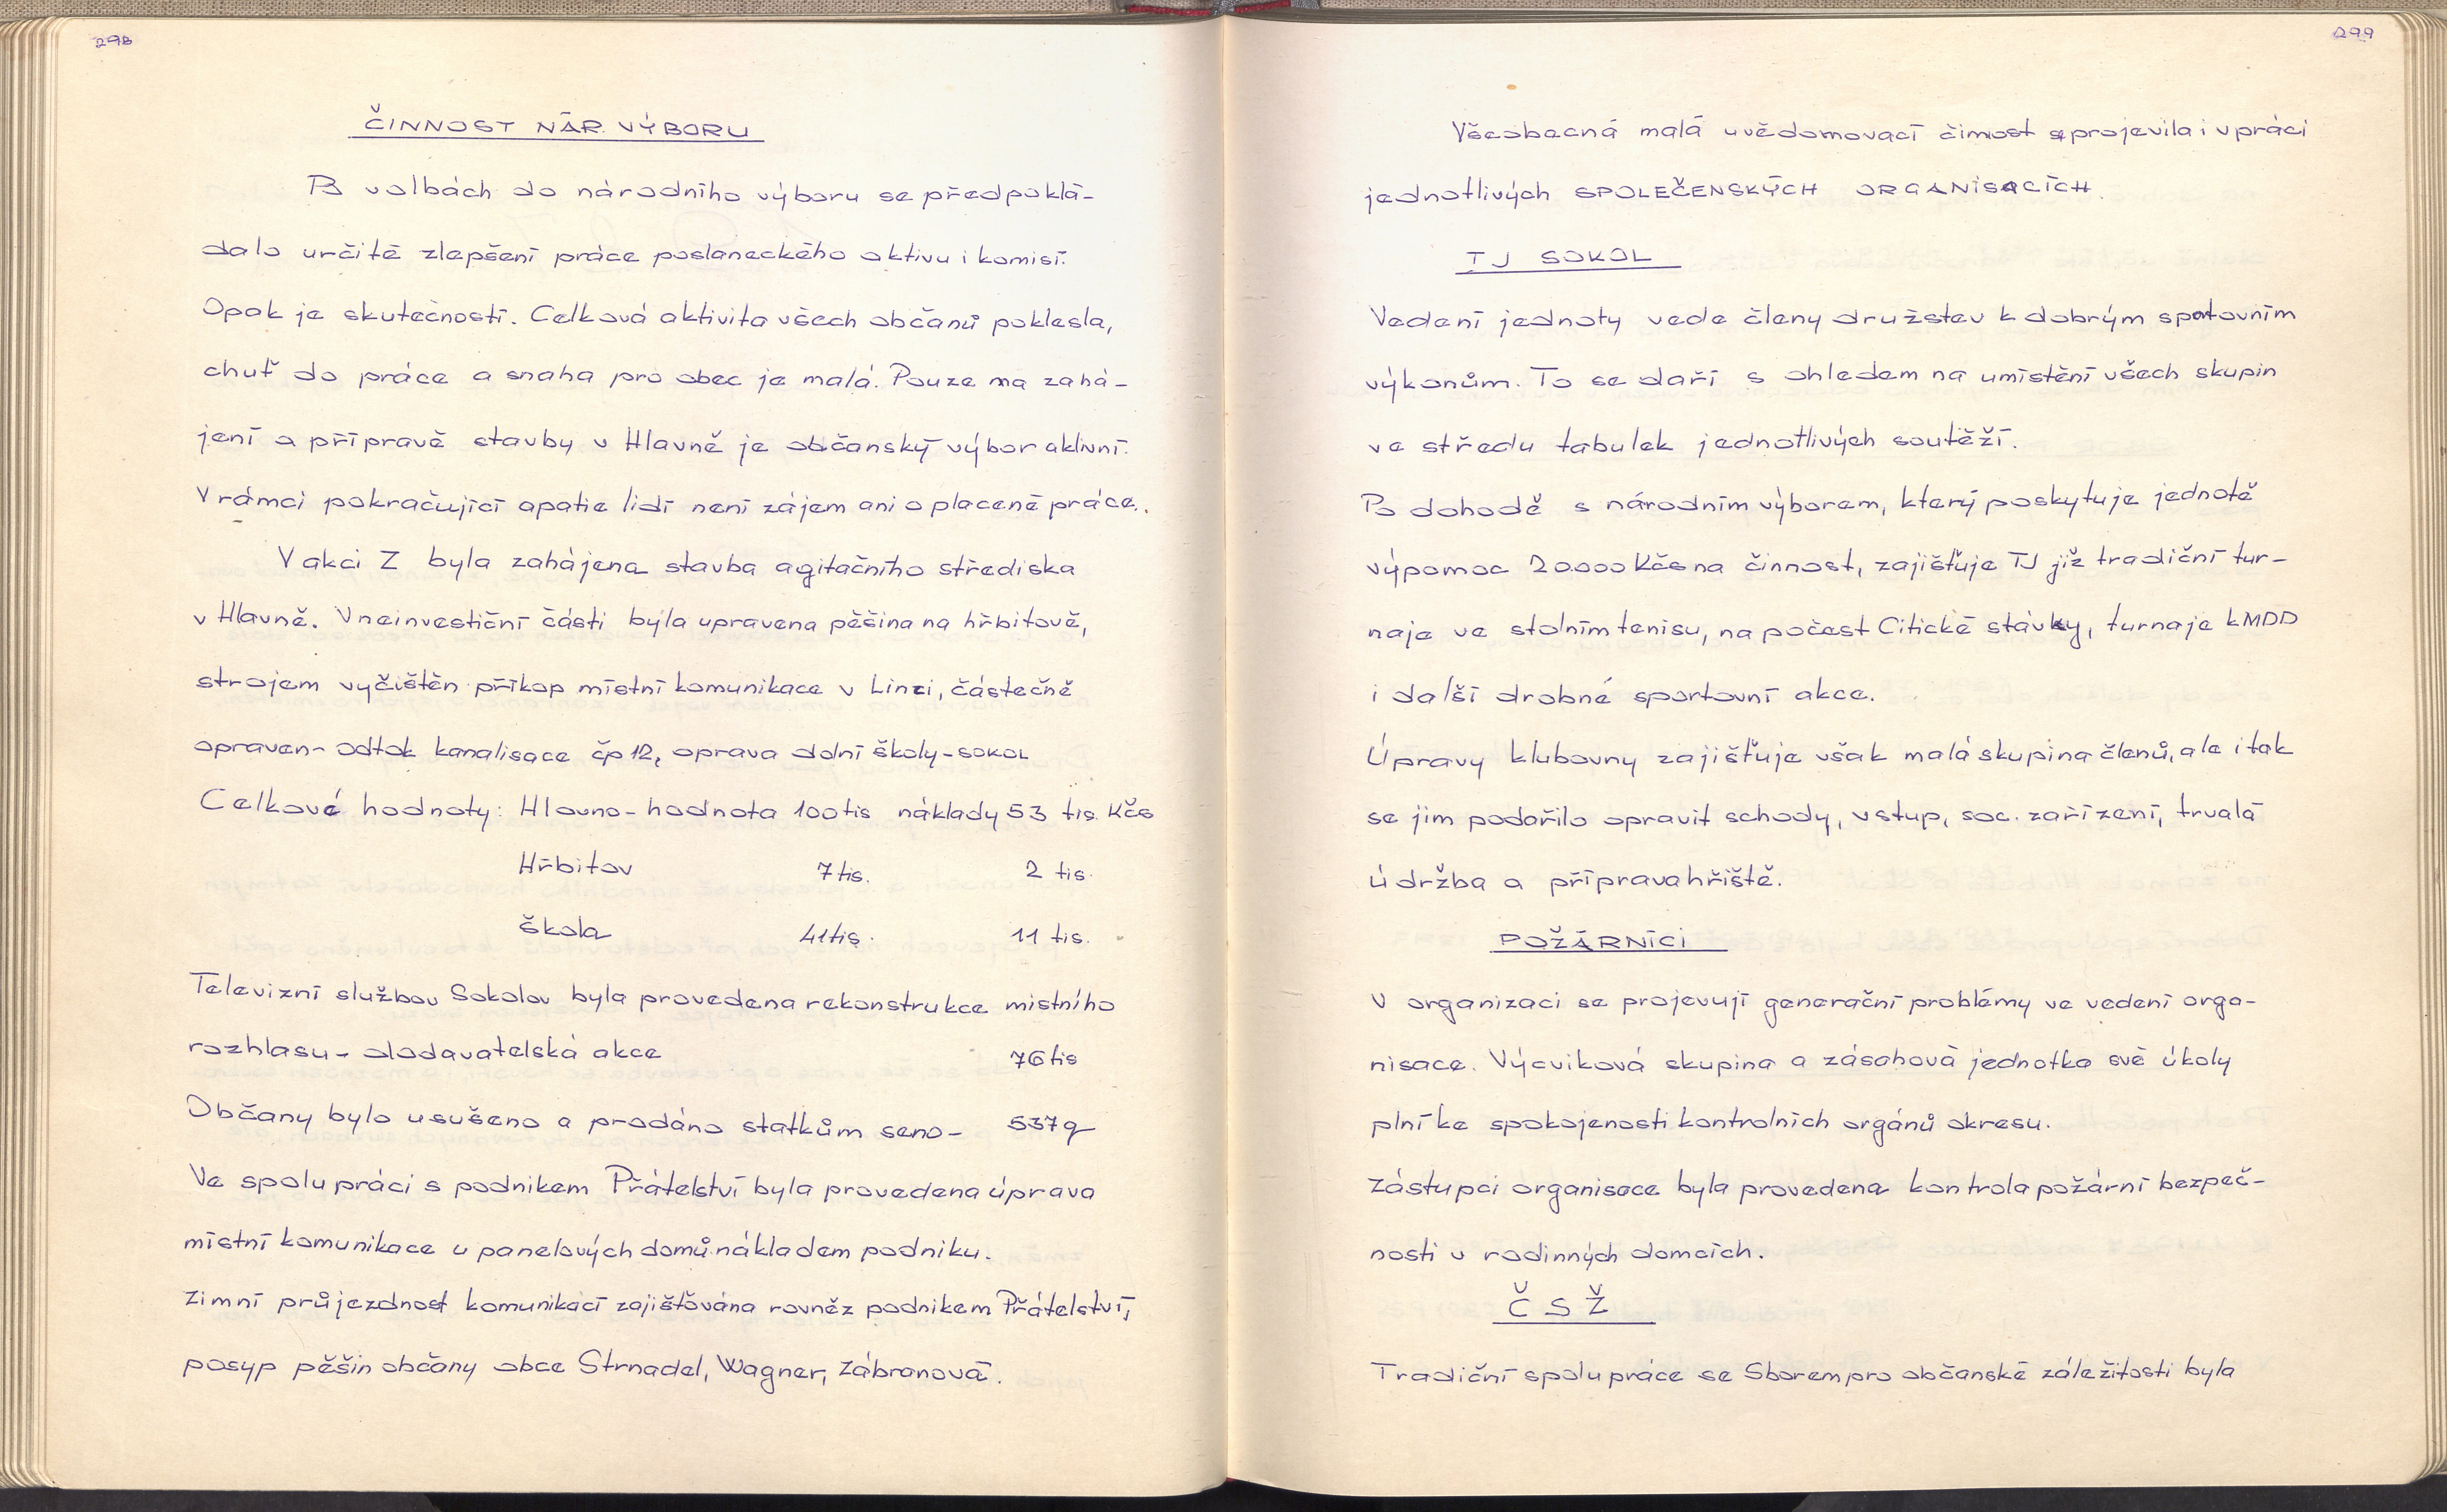 298
ČINNOST NÁR. VÝBORU
Po volbách do národního výboru se předpoklá-
dalo určité zlepšení práce poslaneckého aktivu i komisí.
Opak je skutečností. Celková aktivita všech občanů poklesla,
chuť do práce a snaha pro obec je malá. Pouze na zahá-
jení a přípravě stavby v Hlavně je občanský výbor aktivní.
V rámci pokračující apatie lidí není zájem ani o placené práce.
V akci Z byla zahájena stavba agitačního střediska
v Hlavně. V neinvestiční části byla upravena pěšina na hřbitově,
strojem vyčištěn příkop místní komunikace v Linci, částečně
opraven odtok kanalisace čp 12, oprava dolní školy - SOKOL
Celkové hodnoty: Hlavno - hodnota 100 tis náklady 53 tis. Kčs
Hřbitov 7 tis. 2 tis.
Škola 41 tis. 11 tis.
Televizní službou Sokolov byla provedena rekonstrukce místního
rozhlasu - dodavatelská akce 76 tis
Občany bylo usušeno a prodáno statkům seno - 537 q
Ve spolupráci s podnikem Přátelství byla provedena úprava
místní komunikace u panelových domů nákladem podniku.
Zimní průjezdnost komunikací zajišťována rovněž podnikem Přátelství,
posyp pěšin občany obce Strnadel, Wagner, Zábranová.
299
Všeobecná malá uvědomovací činnost se projevila i v práci
jednotlivých SPOLEČENSKÝCH ORGANISACÍCH.
TJ SOKOL
Vedení jednoty vede členy družstev k dobrým spotovním
výkonům. To se daří s ohledem na umístění všech skupin
ve středu tabulek jednotlivých soutěží.
Po dohodě s národním výborem, který poskytuje jednotě
výpomoc 20.000 Kčs na činnost, zajišťuje TJ již tradiční tur-
naje ve stolním tenisu, na počest Citické stávky, turnaje k MDD
i další drobné sportovní akce.
Úpravy klubovny zajišťuje však malá skupina členů, ale i tak
se jim podařilo opravit schody, vstup, soc. zařízení, trvalá
údržba a příprava hřiště.
POŽÁRNÍCI
V organizaci se projevují generační problémy ve vedení orga-
nisace. Výcviková skupina a zásahová jednotka své úkoly
plní ke spokojenosti kontrolních orgánů okresu.
Zástupci organisace byla provedena kontrola požární bezpeč-
nosti v rodinných domcích.
ČSŽ
Tradiční spolupráce se Sborem pro občanské záležitosti byla